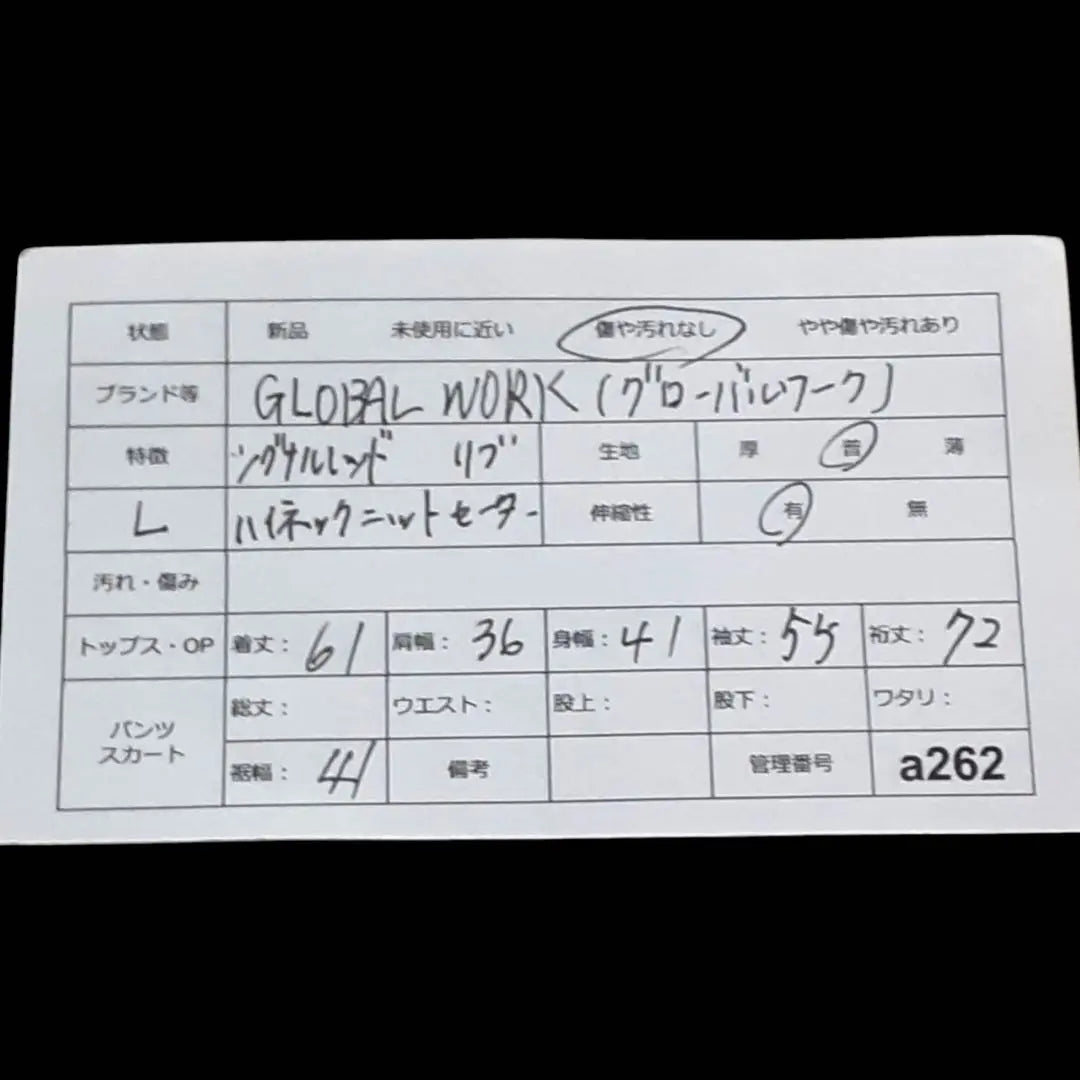 状態 新品 未使用に近い 傷や汚れなし やや傷や汚れあり
ブランド等 GLOBAL WORK (グローバルワーク)
特徴 シグナルレッド リブ 生地 厚 普 薄
L ハイネックニットセーター 伸縮性 有 無
汚れ・傷み
トップス・OP 着丈: 61 肩幅: 36 身幅: 41 袖丈: 55 裄丈: 72
パンツ スカート 総丈: ウエスト: 股上: 股下: ワタリ:
裾幅: 41 備考 管理番号 a262